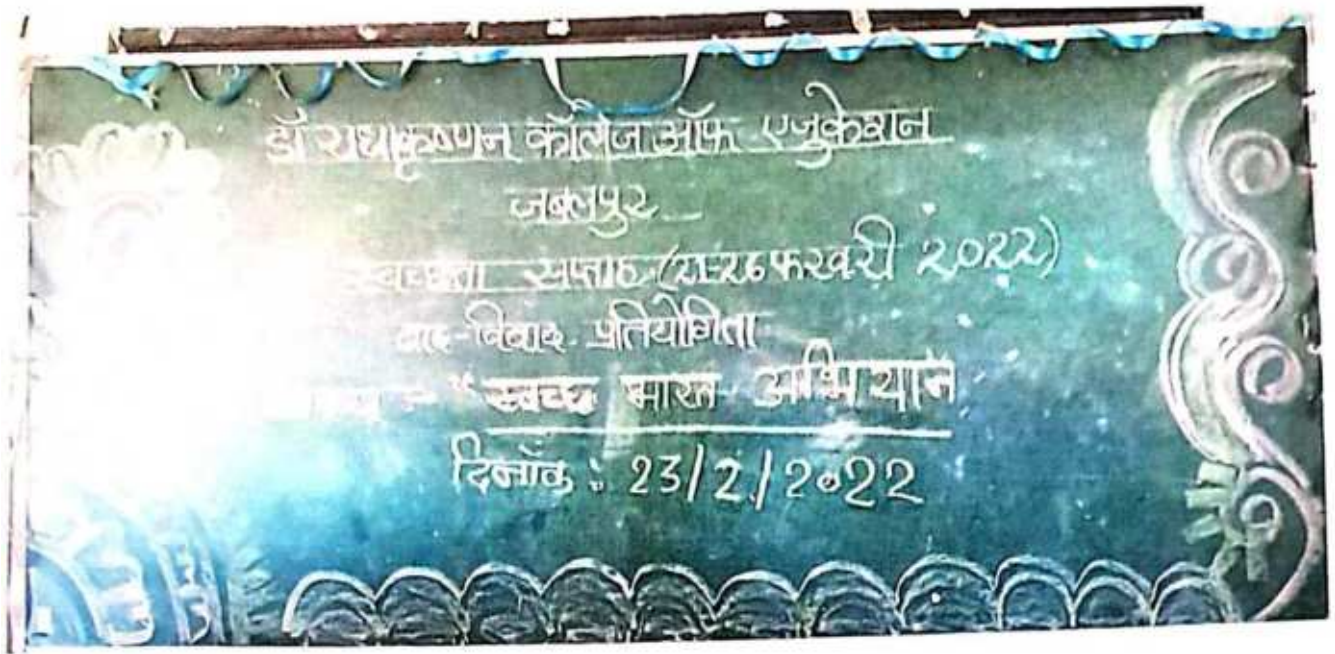 डॉ राधाकृष्णन कॉलेज ऑफ एजुकेशन
जबलपुर
स्वच्छता सप्ताह (21-26 फरवरी 2022)
वाद-विवाद प्रतियोगिता
- "स्वच्छ भारत अभियान
दिनाँक : 23/2/2022